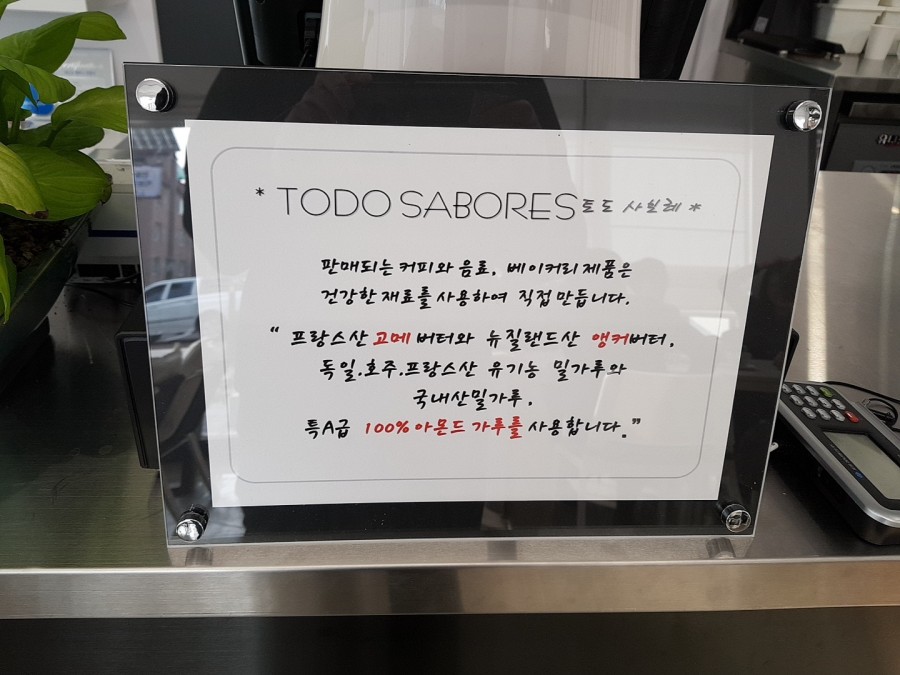 * TODO SABORES 토도 사보레 *
판매되는 커피와 음료, 베이커리 제품은
건강한 재료를 사용하여 직접 만듭니다.
“ 프랑스산 고메 버터와 뉴질랜드산 앵커버터,
독일.호주.프랑스산 유기농 밀가루와
국내산밀가루,
특A급 100% 아몬드 가루를 사용합니다.”